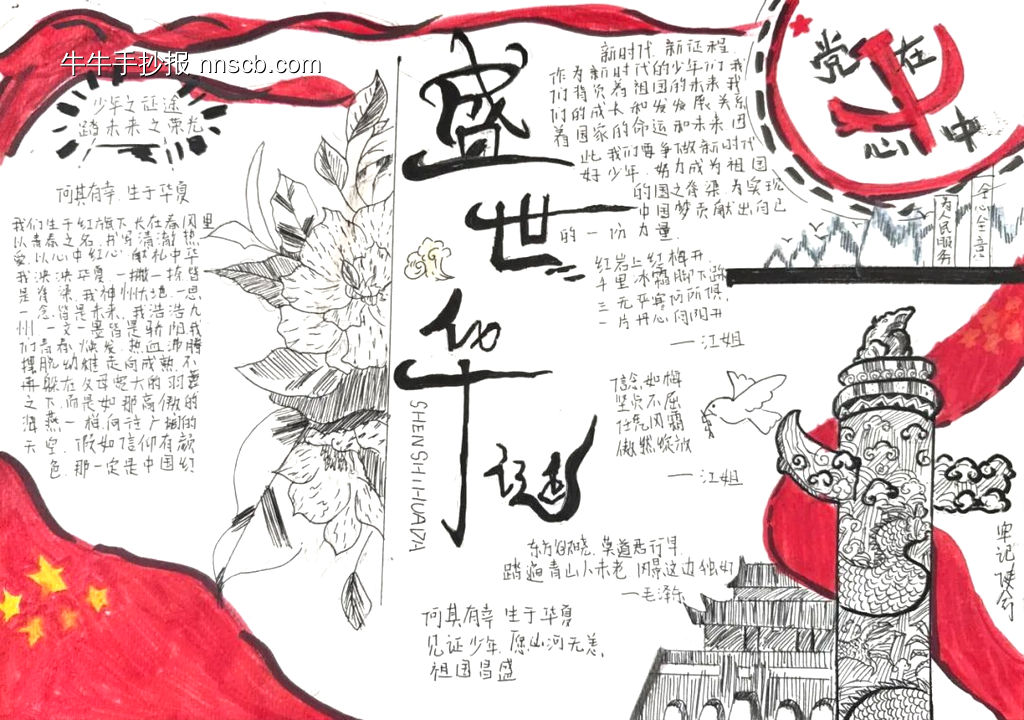 牛牛手抄报 nnscb.com
少年之征途
踏未来之荣光
何其有幸，生于华夏
我们生于红旗下长在春风里
以青春之名，我的清澈热
爱，以心中红心献礼中华
我泱泱华夏，一撇一捺皆
是脊梁，我神州大地，一思
一念皆是未来，我浩浩九
州，一文一墨皆是骄阳我
们青春焕发，热血沸腾
摆脱幼雉走向成熟，不
再躲在父母宽大的羽翼
之下，而是如那高傲的
海燕一样，向往广阔的
天空，假如信仰有颜
色，那一定是中国红
盛世华诞
SHENSHIHUADA
新时代，新征程，
作为新时代的少年们，我
们背负着祖国的未来，我
们的成长和发发展，关系
着国家的命运和未来，因
此，我们要争做新时代
好少年，努力成为祖国
的国之脊梁，为实现
中国梦贡献出自己
的一份力量
党在
心中
为人民服务
全心全意
红岩上红梅开
千里冰霜脚下踩
三九严寒何所惧
一片丹心向阳开
—江姐
信念如梅
坚贞不屈
任凭风霜
傲然绽放
—江姐
东方欲晓，莫道君行早
踏遍青山人未老，风景这边独好
—毛泽东
何其有幸，生于华夏
见证少年，愿山河无恙，
祖国昌盛
牢记使命